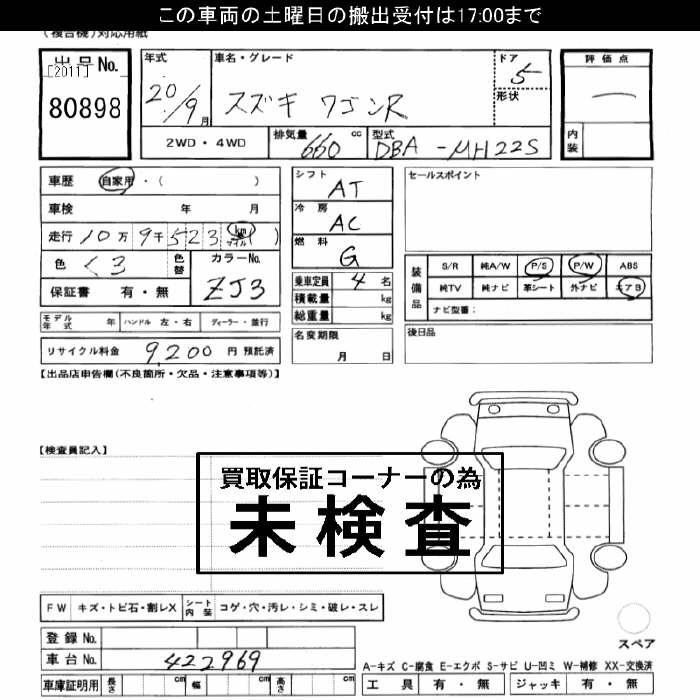 この車両の土曜日の搬出受付は17:00まで
(複合機)対応用紙
出品No.
[2011]
80898
年式
20/9月
車名・グレード
スズキ ワゴンR
ドア
5
形状
評価点
内装
2WD・4WD
排気量
660 cc
型式
DBA-MH22S
車歴 自家用・( )
車検 年 月
走行 10万9千523 km マイル ( )
色 くろ
色替
カラーNo.
ZJ3
保証書 有・無
シフト
AT
冷房
AC
燃料
G
乗車定員 4名
積載量 kg
総重量 kg
セールスポイント
装備品
S/R 純A/W P/S P/W ABS
純TV 純ナビ 革シート 外ナビ エアB
ナビ型番:
モデル年式 年 ハンドル 左・右 ディーラー・並行
リサイクル料金 9,200 円 預託済
名変期限
月 日
後日品
【出品店申告欄(不良箇所・欠品・注意事項等)】
【検査員記入】
買取保証コーナーの為
未検査
FW キズ・トビ石・割レX シート内装 コゲ・穴・汚レ・シミ・破レ・スレ
登録No.
車台No. 422969
車庫証明用 長さ cm 幅 cm 高さ cm
スペア
A-キズ C-腐食 E-エクボ S-サビ U-凹ミ W-補修 XX-交換済
工具 有・無 ジャッキ 有・無